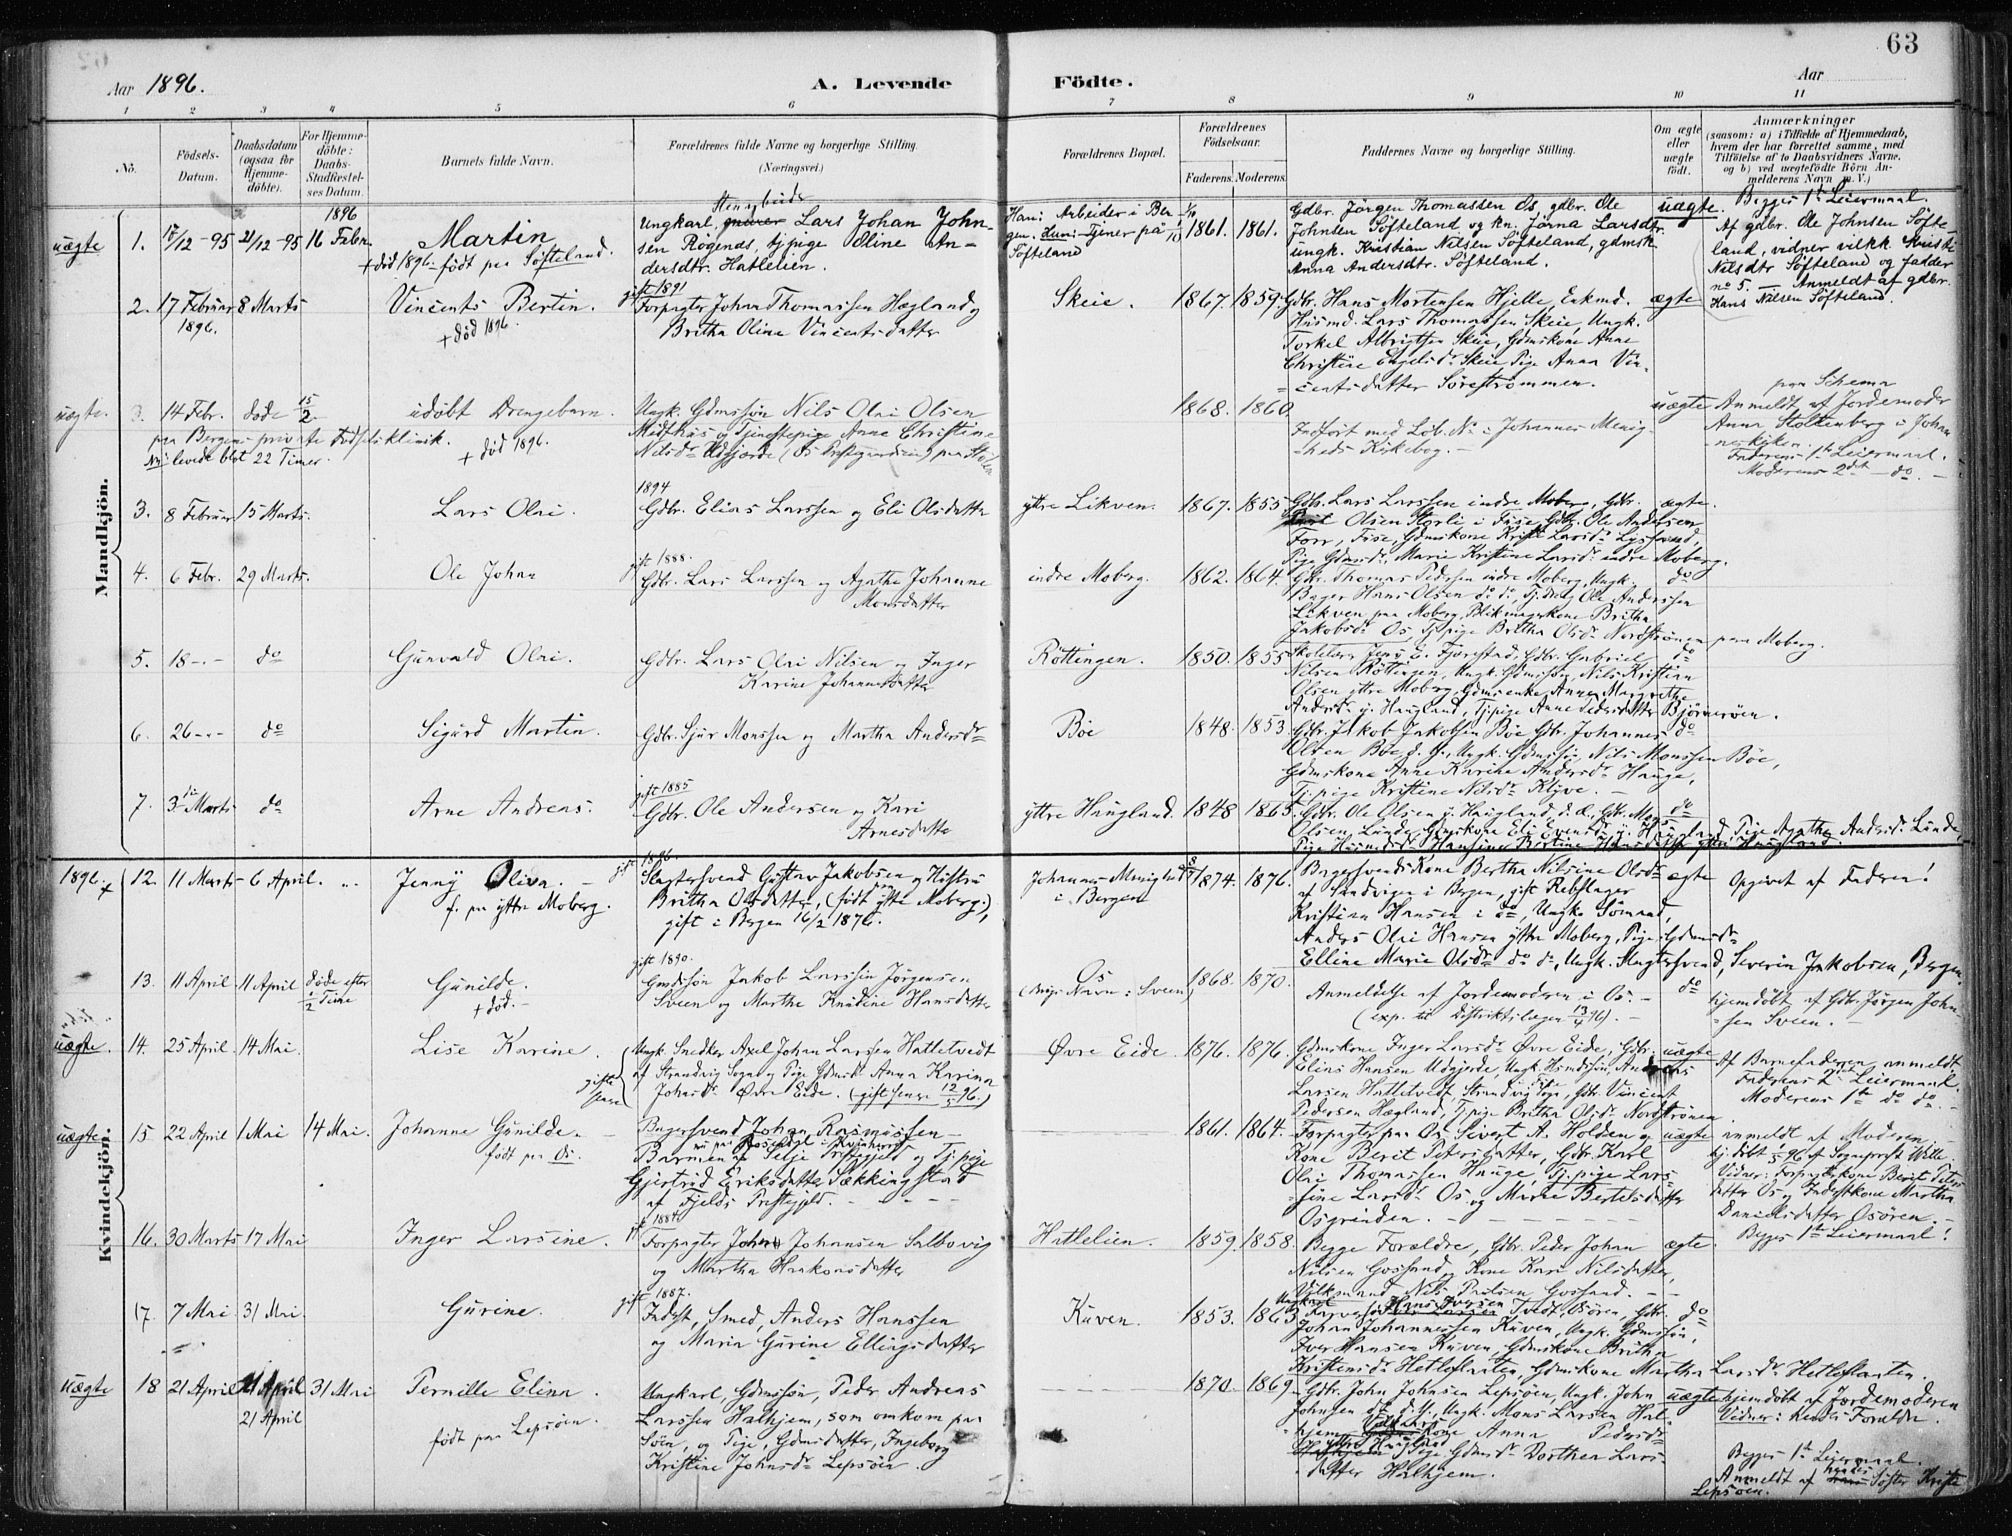 63
Aar 1896.
A. Levende Födte.
Aar
1 2 3 4 5 6 7 8 9 10 11
No.
Födsels-Datum.
Daabsdatum (ogsaa for Hjemme-döbte).
For Hjemme-döbte: Daabs-Stadfæstel-ses Datum.
Barnets fulde Navn.
Forældrenes fulde Navne og borgerlige Stilling.
(Næringsvei.)
Forældrenes Bopæl.
Forældrenes Födselsaar.
Faderens. Moderens.
Faddernes Navne og borgerlige Stilling.
Om ægte eller uægte födt.
Anmærkninger
(saasom: a) i Tilfælde af Hjemmedaab,
hvem der har forrettet samme, med
Tilföielse af to Daabsvidners Navne,
og b) ved uægtefödte Börn An-
melderens Navn m. V.)
Mandkjön.
uægte 1. 17/12-95 21/12-95 1896 16 Febr.
Martin
+död 1896. födt paa Söfteland.
Ungkarl, Lars Johan John-
sen Rogends, tjpige Oline An-
dersdtr. Hatlelien.
Han: Arbeider i Ber-
gen. Hun: Tjener på
Söfteland
1861. 1861.
Gdbr. Jörgen Thomassen Os gdbr. Ole
Johnsen Söfteland og kn. Jörna Larsdtr.
ungk. Kristian Nilsen Söfteland, gdmsk.
Anna Andersdtr. Söfteland.
uægte.
Begges 1ste Leiermaal.
Af gdbr. Ole Johnsen Söfte-
land, vidner vilkk Kristi
Nilsdtr Söfteland og fadder
no 5. — Anmeldt af gdbr.
Hans Nilsen Söfteland.
2. 17 Februar 1896. 8 Marts
Vincents Bertin.
+ död 1896.
gift 1891
Forpagter Johan Thomassen Hægland og
Britha Oline Vincentsdatter
Skeie. 1867. 1859.
Gdbr. Hans Mortensen Hjelle, Enkmd.
Husmd. Lars Thomassen Skeie, Ungk.
Torkel Albrigtsen Skeie, Gdmskone Anne
Christine Engelsdr Skeie, Pige Anna Vin-
centsdatter Sörestrømmen.
ægte
uægte. 3. 14 Febr. döde 15/2
udöbt Drengebarn.
+ död 1896.
paa Bergens private Födselsklinik.
levede blot 22 Timer.
Ungk. Gdmssön Nils Olai Olsen
Midthus og Tjenestepige Anne Christine
1868. 1860.
Indfört med Löb. No i Johannes Menig-
heds Kirkebog. —
uægte
paa Schema
Anmeldt af Jordemoder
Anna Stoltenberg i Johan-
neskirken.
Faderens 1ste Leiermaal.
Moderens 2det — do. —
3. 8 Februar 15 Marts.
Lars Olai.
1894
Gdbr. Elias Larssen og Eli Olsdatter
yttre Likven. 1867. 1855
Gdbr. Lars Larssen indre Moberg, Gdbr.
Olsen Storli i Fuse, Gdbr. Ole Andersen
Pige Gdmsdr Marie Kristine Larsdr indre Moberg.
ægte.
4. 6 Febr. 29 Marts.
Ole Johan
gift 1888.
Gdbr. Lars Larssen og Agathe Johanne
Monsdatter
indre Moberg. 1862. 1864.
Gdbr. Thomas Pedersen indre Moberg, Ungk.
Bager Hans Olsen do do, Tjdreng Ole Anderssen
Likven paa Moberg, Blikmagerkone Britha
Jakobsdr Os, Tjpige Britha Olsdr Nordströnen paa Moberg.
do
5. 18 -.- do
Gunvald Olai.
Gdbr. Lars Olai Nilsen og Inger
Karine Johannesdatter
Röttingen. 1850. 1855
Skolelærer Jens E. Fjæretad, Gdbr. Gabriel
Nilsen Röttingen, Ungk. Gdmssön Nils Kristian
Olsen yttre Moberg, Gdmsenke Anne Margrethe
Andersdr y. Haugland, Tjpige Anne Pedersdatter Björneröen.
do
6. 26 -.- do
Sigurd Martin.
Gdbr. Sjur Monssen og Martha Andersdr
Böe 1848. 1853.
Gdbr. Jakob Jakobsen Böe, Gdbr. Johannes
Olsen Böe d. y., Ungk. Gdmssön Nils Monssen Böe,
Gdmskone Anne Karine Andersdr Hauge,
Tjpige Kristine Nilsdr Klyve. —
do
7. 3 Marts do
Arne Andreas.
gift 1885
Gdbr. Ole Andersen og Kari
Arnesdatter
yttre Haugland. 1848 1865.
Gdbr. Ole Olsen y. Haugland d. æ., Gdbr. Mons
Olsen Lunde, Gdmskone Eli Evensdr y. Haugland, Pige Agathe Andersdr Lunde,
Pige Husmdsdr Hansine Bertine Hansdr yttre Haugland.
do
Kvindekjön.
1896. + 12. 11 Marts 6 April. "
Jenny Oliva. —
f. paa yttre Moberg.
gift 1896.
Slagtersvend Gustav Jakobsen og Hustru
Britha Olsdatter, (født yttre Moberg),
gift i Bergen 16/2 1876.
Johannes Menighed
i Bergen
1874. 1876.
Bagersvends Kone Bertha Nilsine Olsdr
af Sandvigen i Bergen, gift Rebslager
Kristian Hansen i do, Ungk. Sömand,
Anders Olai Hansen yttre Moberg, Pige Gdmsdr
Elline Marie Olsdr do do, Ungk. Slagtersvend, Severin Jakobsen, Bergen.
ægte
Opgivet af Faderen!
13. 11 April 11 April Döde efter 1/2 Time
Gunilde.
+ död. —
gift 1890.
Gmdssön Jakob Larssen Jörgensen
Sveen og Martha Knudine Hansdatter
Os
(Navn: Sveen)
1868. 1870.
Anmeldelse af Jordemoderen i Os. —
(exp. til Distriktslægen 13/4 96). —
do
hjemdöbt af Gdbr. Jörgen John-
sen Sveen. —
uægte. 14. 25 April. 14 Mai.
Lise Karine.
Ungk. Snedker Axel Johan Larssen Hatletvedt
af Strandvig Sogn og Pige Gdmsdr Anna Karina
Johnsdr Övre Eide. (gift senere 12/5 96.)
gifte senere
Övre Eide. 1876. 1876.
Gdmskone Inger Larsdr Övre Eide, Gdbr.
Elias Hansen Udgjerde, Ungk. Husmdssön, Andreas
Larsen Hatletvedt, Strandvig Sogn, Gdbr. Vincent
Pedersen Hægland, Tjpige Britha Olsdr Nordströnen
uægte
Af Barnefaderen anmeldt
Faderens 2det Leiermaal.
Moderens 1ste do do. —
uægte 15 22 April 1 Mai 14 Mai.
Johanne Gunilde. —
födt paa Os.
Bagersvend Johan Rasmussen —
Barmen af Selje Præstegjeld og Tjpige
Gjertrud Eriksdatter Sækkingstad
af Fjelds Præstegjeld. — — —
1861. 1864.
Forpagter paa Os Sivert A. Holden og
Kone Berit Petersdatter, Gdbr. Karl
Olai Thomassen Hauge, Tjpige Lars-
ine Larsdr Os og Marie Bertelsdatter
Osgrinden. — — —
uægte
anmeldt af Moderen —
hj. döbt 1/5 96 af Sogneprest Wille.
Vidner: Forpagterkone Berit Peters-
datter Os og Inderstkone Martha
Danielsdatter Osören. —
Begges 1ste Leiermaal!
16. 30 Marts 17 Mai
Inger Larsine.
gift 1884.
Forpagter Johan Johansen Salbovig
og Martha Haakonsdatter
Hatlelien. 1859. 1858.
Begge Forældre, Gdbr. Peder Johan
Nilsen Gossand og Kone Kari Nilsdatter,
Vilkmand Nils Paulsen Gossand. — —
ægte.
17. 7 Mai 31 Mai.
Gurine.
gift 1887.
Inderst, Smed, Anders Hanssen
og Maria Gurine Ellingsdatter
Kuven. 1853. 1863
Ungkarl Hans Iversen Tvedt, Osören, Gdbr.
Johan Johannessen Kuven, Ungk. Gdmssön,
Iver Hansen Kuven, Gdmskone Britha
Kristensdr Hetleflanten, Gdmskone Martha Larsdr Hetleflanten.
do
uægte 18 21 April 21 April 31 Mai
21 April
Pernille Elina.
födt paa Lepsöen.
Ungkarl, Gdmssön, Peder Andreas
Larssen Halhjem, som omkom paa
Söen, og Pige, Gdmsdatter, Ingeborg
Kristine Johnsdr Lepsöen.
1870. 1869
Gdbr. John Johnsen Lepsöen, Ungk. John
Johnsen do d. y., Ungk. Mons Larsen Hal-
hjem, kone Anna Pedersdr
Pige Gdmsdr Dorthea Lars-
datter Halhjem.
uægte
hjemdöbt af Jordemoderen
Vidner: hendes Forældre.
Begges 1ste Leiermaal.
Anmeldt af hendes Söster Kristi
Lepsöen.